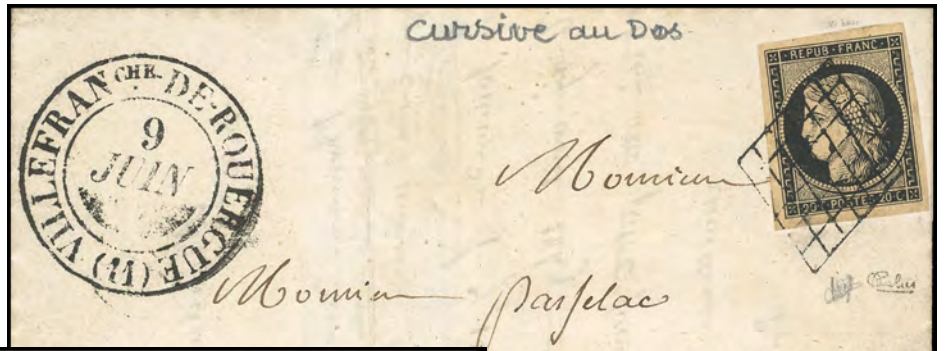 cursive au Dos
VILLEFRANCHE. DE-ROUERGUE (11)
9
JUIN
REPUB·FRANC·
20 C POSTES 20 C
Monsieur
Monsieur Passelac
Calves